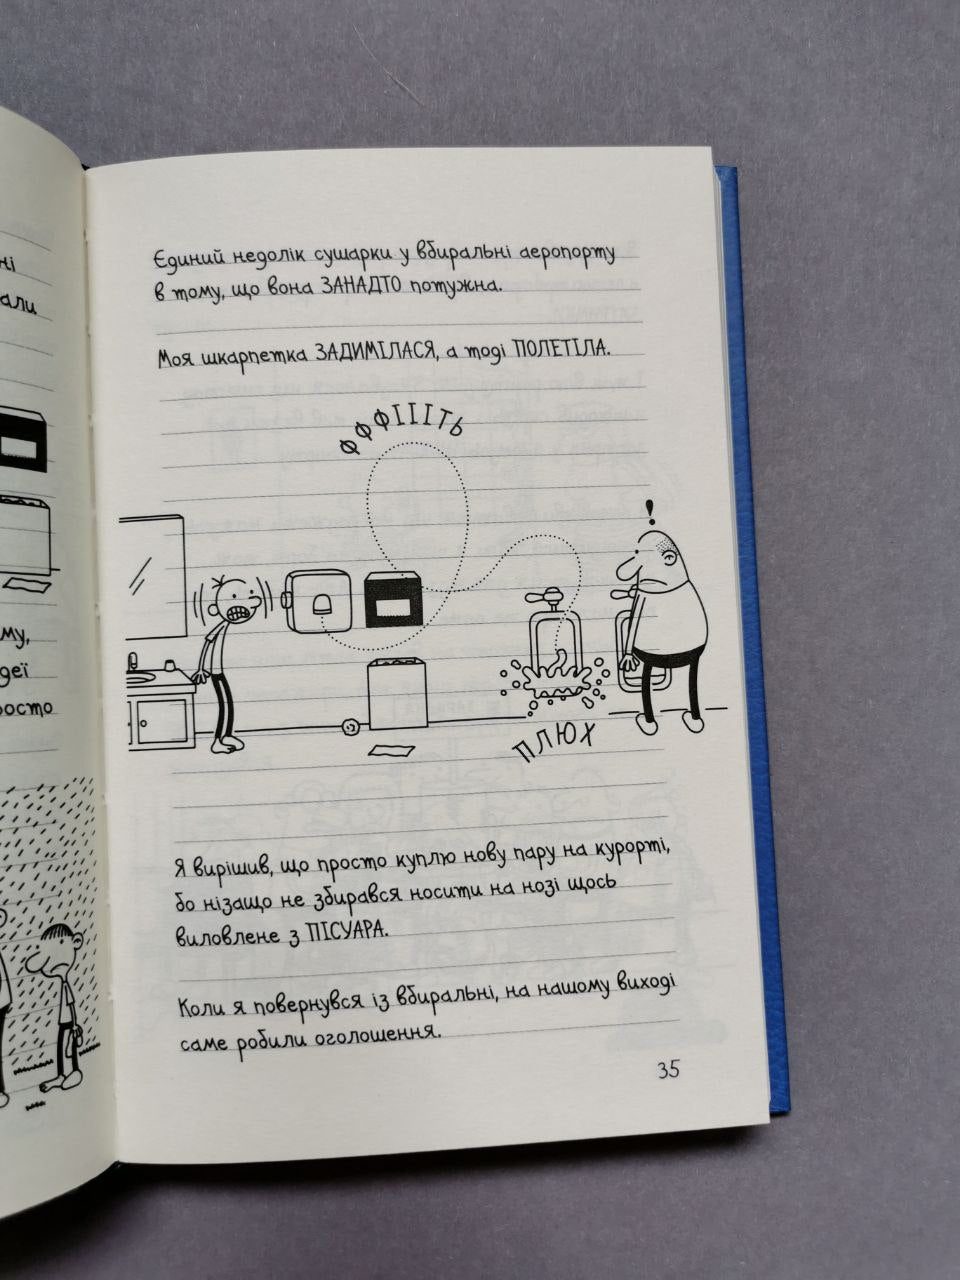 ні
али
му,
деї
росто
Єдиний недолік сушарки у вбиральні аеропорту
в тому, що вона ЗАНАДТО потужна.
Моя шкарпетка ЗАДИМІЛАСЯ, а тоді ПОЛЕТІЛА.
ФФФІІІТЬ
!
ПЛЮХ
Я вирішив, що просто куплю нову пару на курорті,
бо нізащо не збирався носити на нозі щось
виловлене з ПІСУАРА.
Коли я повернувся із вбиральні, на нашому виході
саме робили оголошення.
35